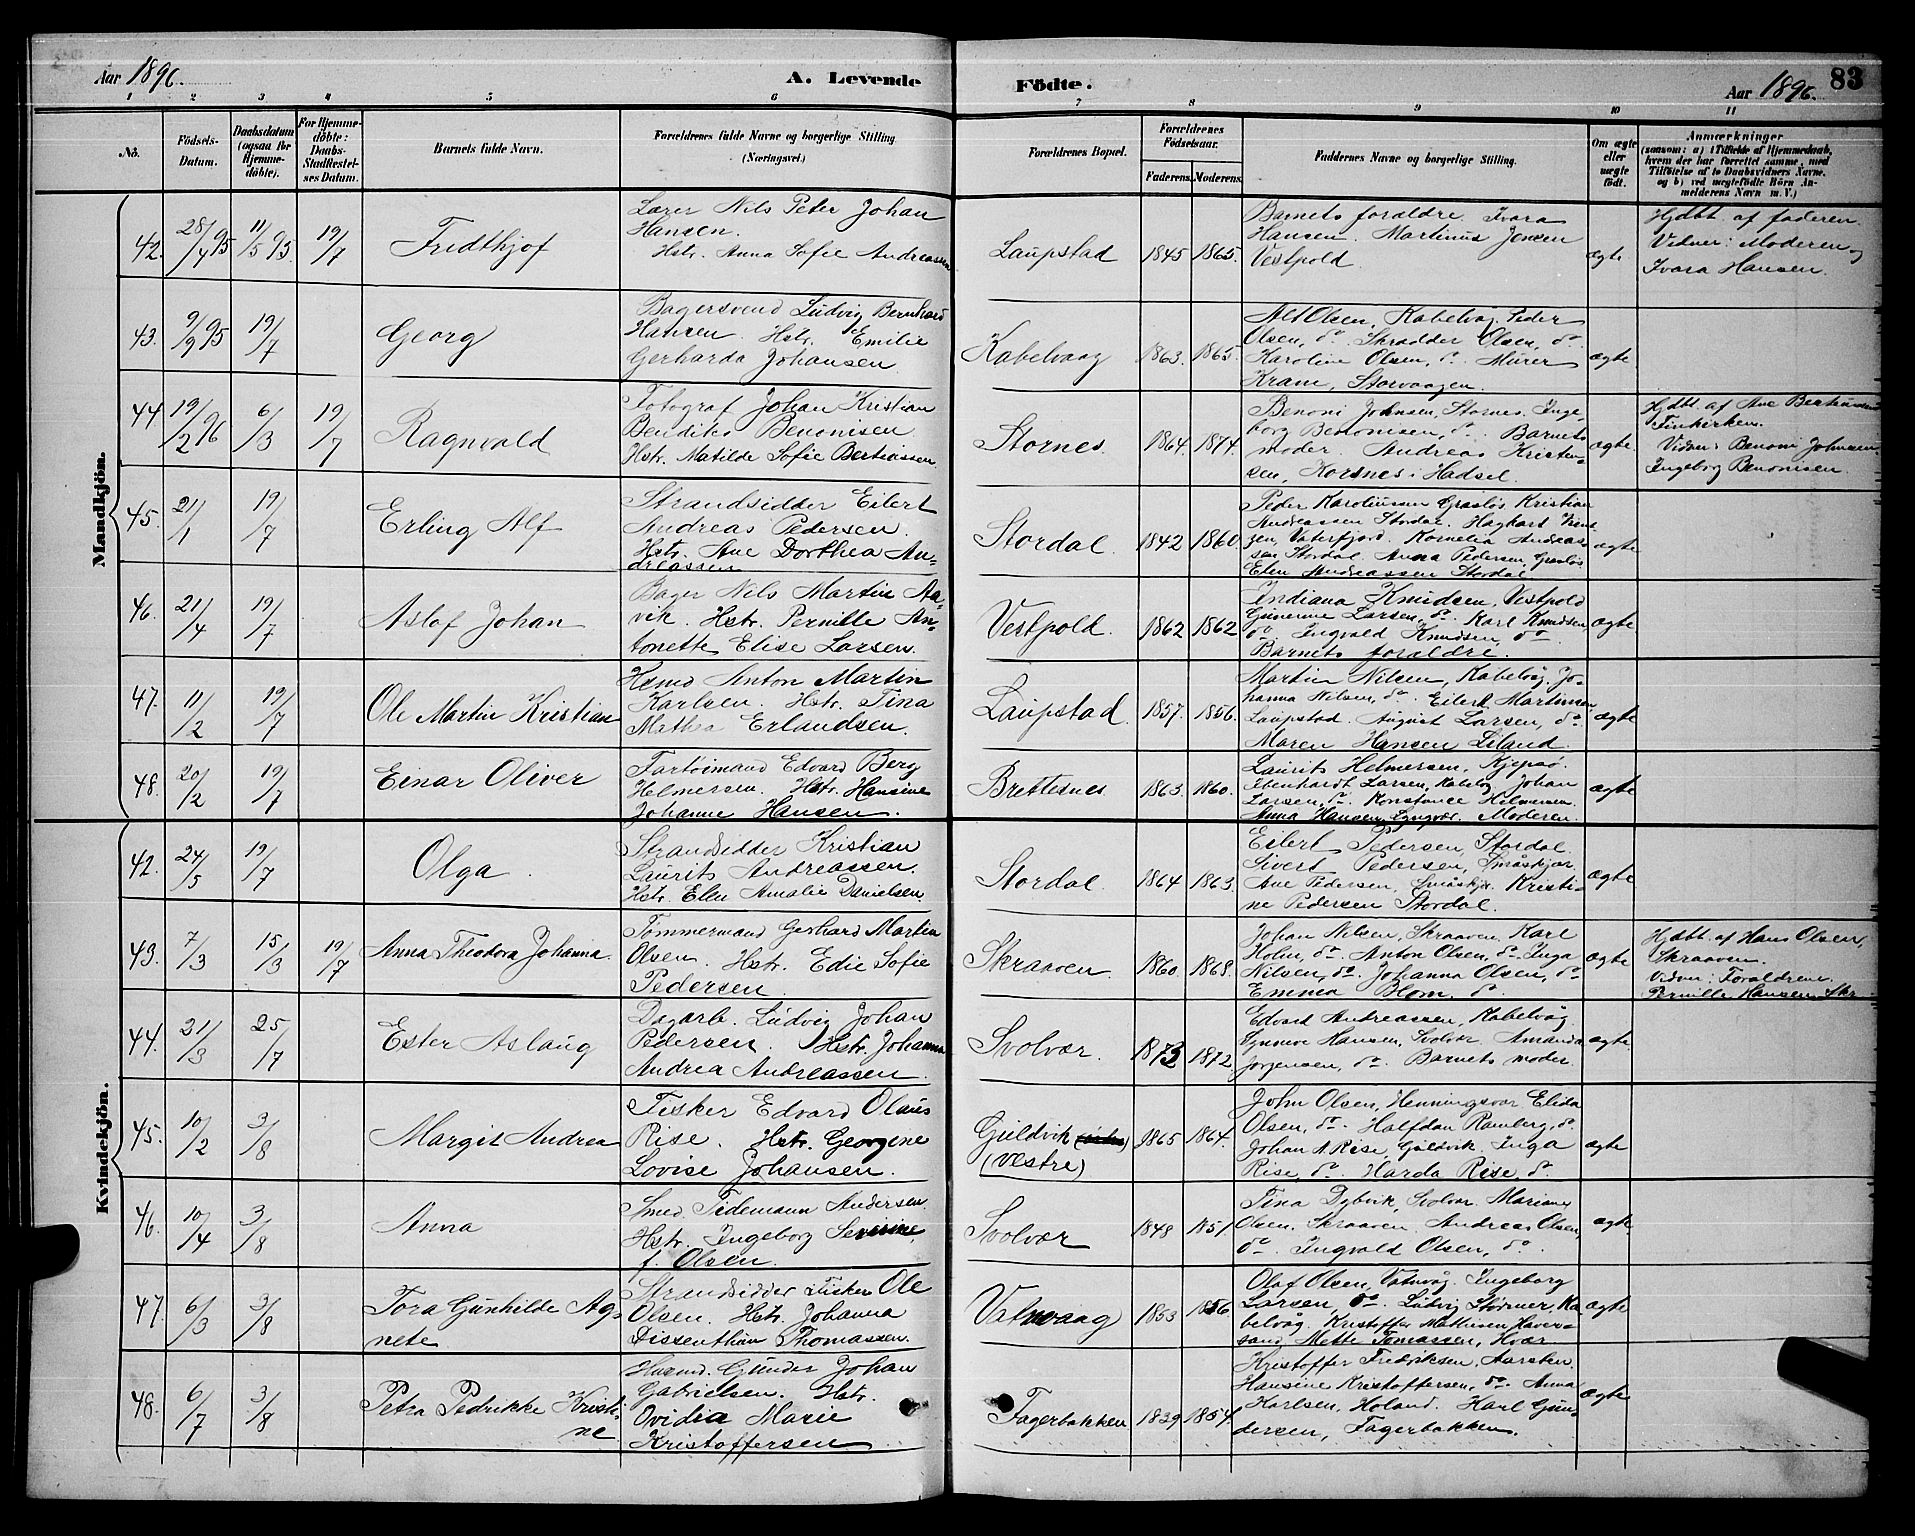 Aar 1896. A. Levende Födte. Aar 1896. 83
1 2 3 4 5 6 7 8 9 10 11
No. Födsels-Datum. Daabsdatum (ogsaa for Hjemmedöbte). For Hjemmedöbte: Daabs-Stadfæstelses Datum. Barnets fulde Navn. Forældrenes fulde Navne og borgerlige Stilling (Næringsvei). Forældrenes Bopæl. Forældrenes Födselsaar. Faderens. Moderens. Faddernes Navne og borgerlige Stilling. Om ægte eller uægte födt. Anmærkninger (saasom: a) i Tilfælde af Hjemmedaab, hvem der har forrettet samme, med Tilföielse af to Daabsvidners Navne. og b) ved uægtefödte Börn Anmelderens Navn m. V.)
Mandkjön.
42. 28/4 95 11/5 95. 19/7 Fridthjof
Lærer Nils Peter Johan
Hansen.
Hstr. Anna Sofie Andreassen
Laupstad 1845 1865.
Barnets forældre. Ivara
Hansen. Martinus Jensen
Vestpold.
ægte
Hjdbt. af faderen.
Vidner: Moderen og
Ivara Hansen.
43. 9/9 95 19/7 Georg
Bagersvend Ludvig Bernhard
Hansen. Hstr. Emilie
Gerharda Johansen
Kabelvaag 1863. 1865.
Alf Olsen, Kabelvåg. Peder
Olsen, do. Skrædder Olsen, do.
Karoline Olsen, do. Murer
Krane, Storvaagen.
ægte
44. 19/2 96 6/3 19/7 Ragnvald
Fotograf Johan Kristian
Bendiks Benonisen
Hstr. Matilde Sofie Bertiassen
Stornes 1864. 1874.
Benoni Johnsen, Stornes. Inge-
borg Benonisen, do. Barnets
moder. Andreas Kristen-
sen, Korsnes i Hadsel.
ægte
Hjdbt. af Ane
Vidner: Benoni Johnsen
Ingeborg Benonisen.
45. 21/1 19/7 Erling Alf
Strandsidder Eilert
Andreas Pedersen.
Hstr. Ane Dorthea An-
dreassen
Stordal. 1842 1860
Peder Karoliussen Kristian
Andreassen Stordal. Hagbart
sen, Vaterfjord. Kornelia Andreas-
sen Stordal. Anna Pedersen,
Elen Andreassen Stordal
ægte
46. 21/4 19/7 Aslof Johan
Bager Nils Martin Aa-
vik. Hstr. Pernille An-
tonette Elise Larsen.
Vestpold. 1862 1862
Endiana Knudsen, Vestpold
Larsen, do. Karl Knudsen,
do. Ingvald Knudsen, do.
Barnets forældre.
ægte
47. 11/2 19/7 Ole Martin Kristian
Hsmd Anton Martin
Karlsen. Hstr. Tina
Mathea Erlandsen.
Laupstad. 1857. 1856.
Martin Nilsen, Kabelvåg, Jo-
hanna Nilsen, do. Eilert Martinsen
Laupstad. August Larsen, do.
Maren Hansen Liland.
ægte
48. 20/2 19/7 Einar Oliver
Fartöimand Edvard Berg
Helmersen. Hstr. Hansine
Johanne Hansen.
Brettesnes 1863. 1860.
Laurits Helmersen, Kjepsø.
Ebenhardt Larsen, Kabelvåg Johan
Larsen, do. Konstance Helmersen
Anna Hansen, Lyngvær. Moderen.
ægte
Kvindekjön.
42. 24/5 19/7 Olga
Strandsidder Kristian
Laurits Andreassen.
Hstr. Elen Amalie Danielsen.
Stordal. 1864 1863.
Eilert Pedersen, Stordal.
Sivert Pedersen, Småskjær
Ane Pedersen, Småskjr. Kristi-
ne Pedersen Stordal.
ægte
43. 7/3 15/3 19/7 Anna Theodora Johanna.
Tømmermand Gerhard Martin
Olsen. Hstr. Edie Sofie
Pedersen
Skraaven 1860 1868.
Johan Nilsen, Skraaven, Karl
Holm, do. Anton Olsen, do. Inga
Nilsen, do. Johanna Olsen, do
Emma Blom, do.
ægte
Hjdbt. af Hans Olsen,
Skraaven.
Vidner: Forældrene
Pernille Hansen, Skr
44. 21/3 25/17 Ester Aslaug
Dagarb. Ludvig Johan
Pedersen. Hstr. Johanna
Andrea Andreassen.
Svolvær. 1873 1872
Edvard Andreassen, Kabelvåg
Synnøve Hansen, Svolvær. Amanda
Jørgensen, do. Barnets moder.
ægte.
45. 10/2 3/8 Margit Andrea
Fisker Edvard Olaus
Rise. Hstr. Georgine
Lovise Johansen.
Guldvik
(vestre)
1865 1864.
John Olsen, Henningsvær Elida
Olsen, do. Halfdan Ramberg, do.
Johan A Rise, Guldvik. Inga
Rise, do. Harda Rise, do.
ægte
46. 10/4 3/8 Anna
Smed Tidemann Andersen.
Hstr. Ingeborg Severine,
f. Olsen.
Svolvær 1848 1851.
Tina Dybvik, Svolvær. Mariane
Olsen, Skraaven. Andreas Olsen,
do. Ingvald Olsen, do.
ægte.
47. 6/3 3/8 Tora Gunhilde Ag-
nete
Strandsidder Fisker Ole
Olsen. Hstr. Johanna
Dissenthin Thomassen.
Vatnvaag 1853 1856
Olaf Olsen, Vatnvåg. Ingeborg
Larsen, do. Ludvig Størmer, Ka-
belvåg. Kristoffer Mathisen Haver-
sand Mette Tomassen, Hvær
ægte
48. 6/7 3/8 Petra Pedrikke Kristi-
ne
Husmd. Gunder Johan
Gabrielsen. Hstr.
Ovidia Marie
Kristoffersen
Fagerbakken 1839 1854.
Kristoffer Fredriksen, Aarsten.
Hansine Kristoffersen, do. Anna
Karlsen, Holand. Karl Gun-
dersen, Fagerbakken.
ægte